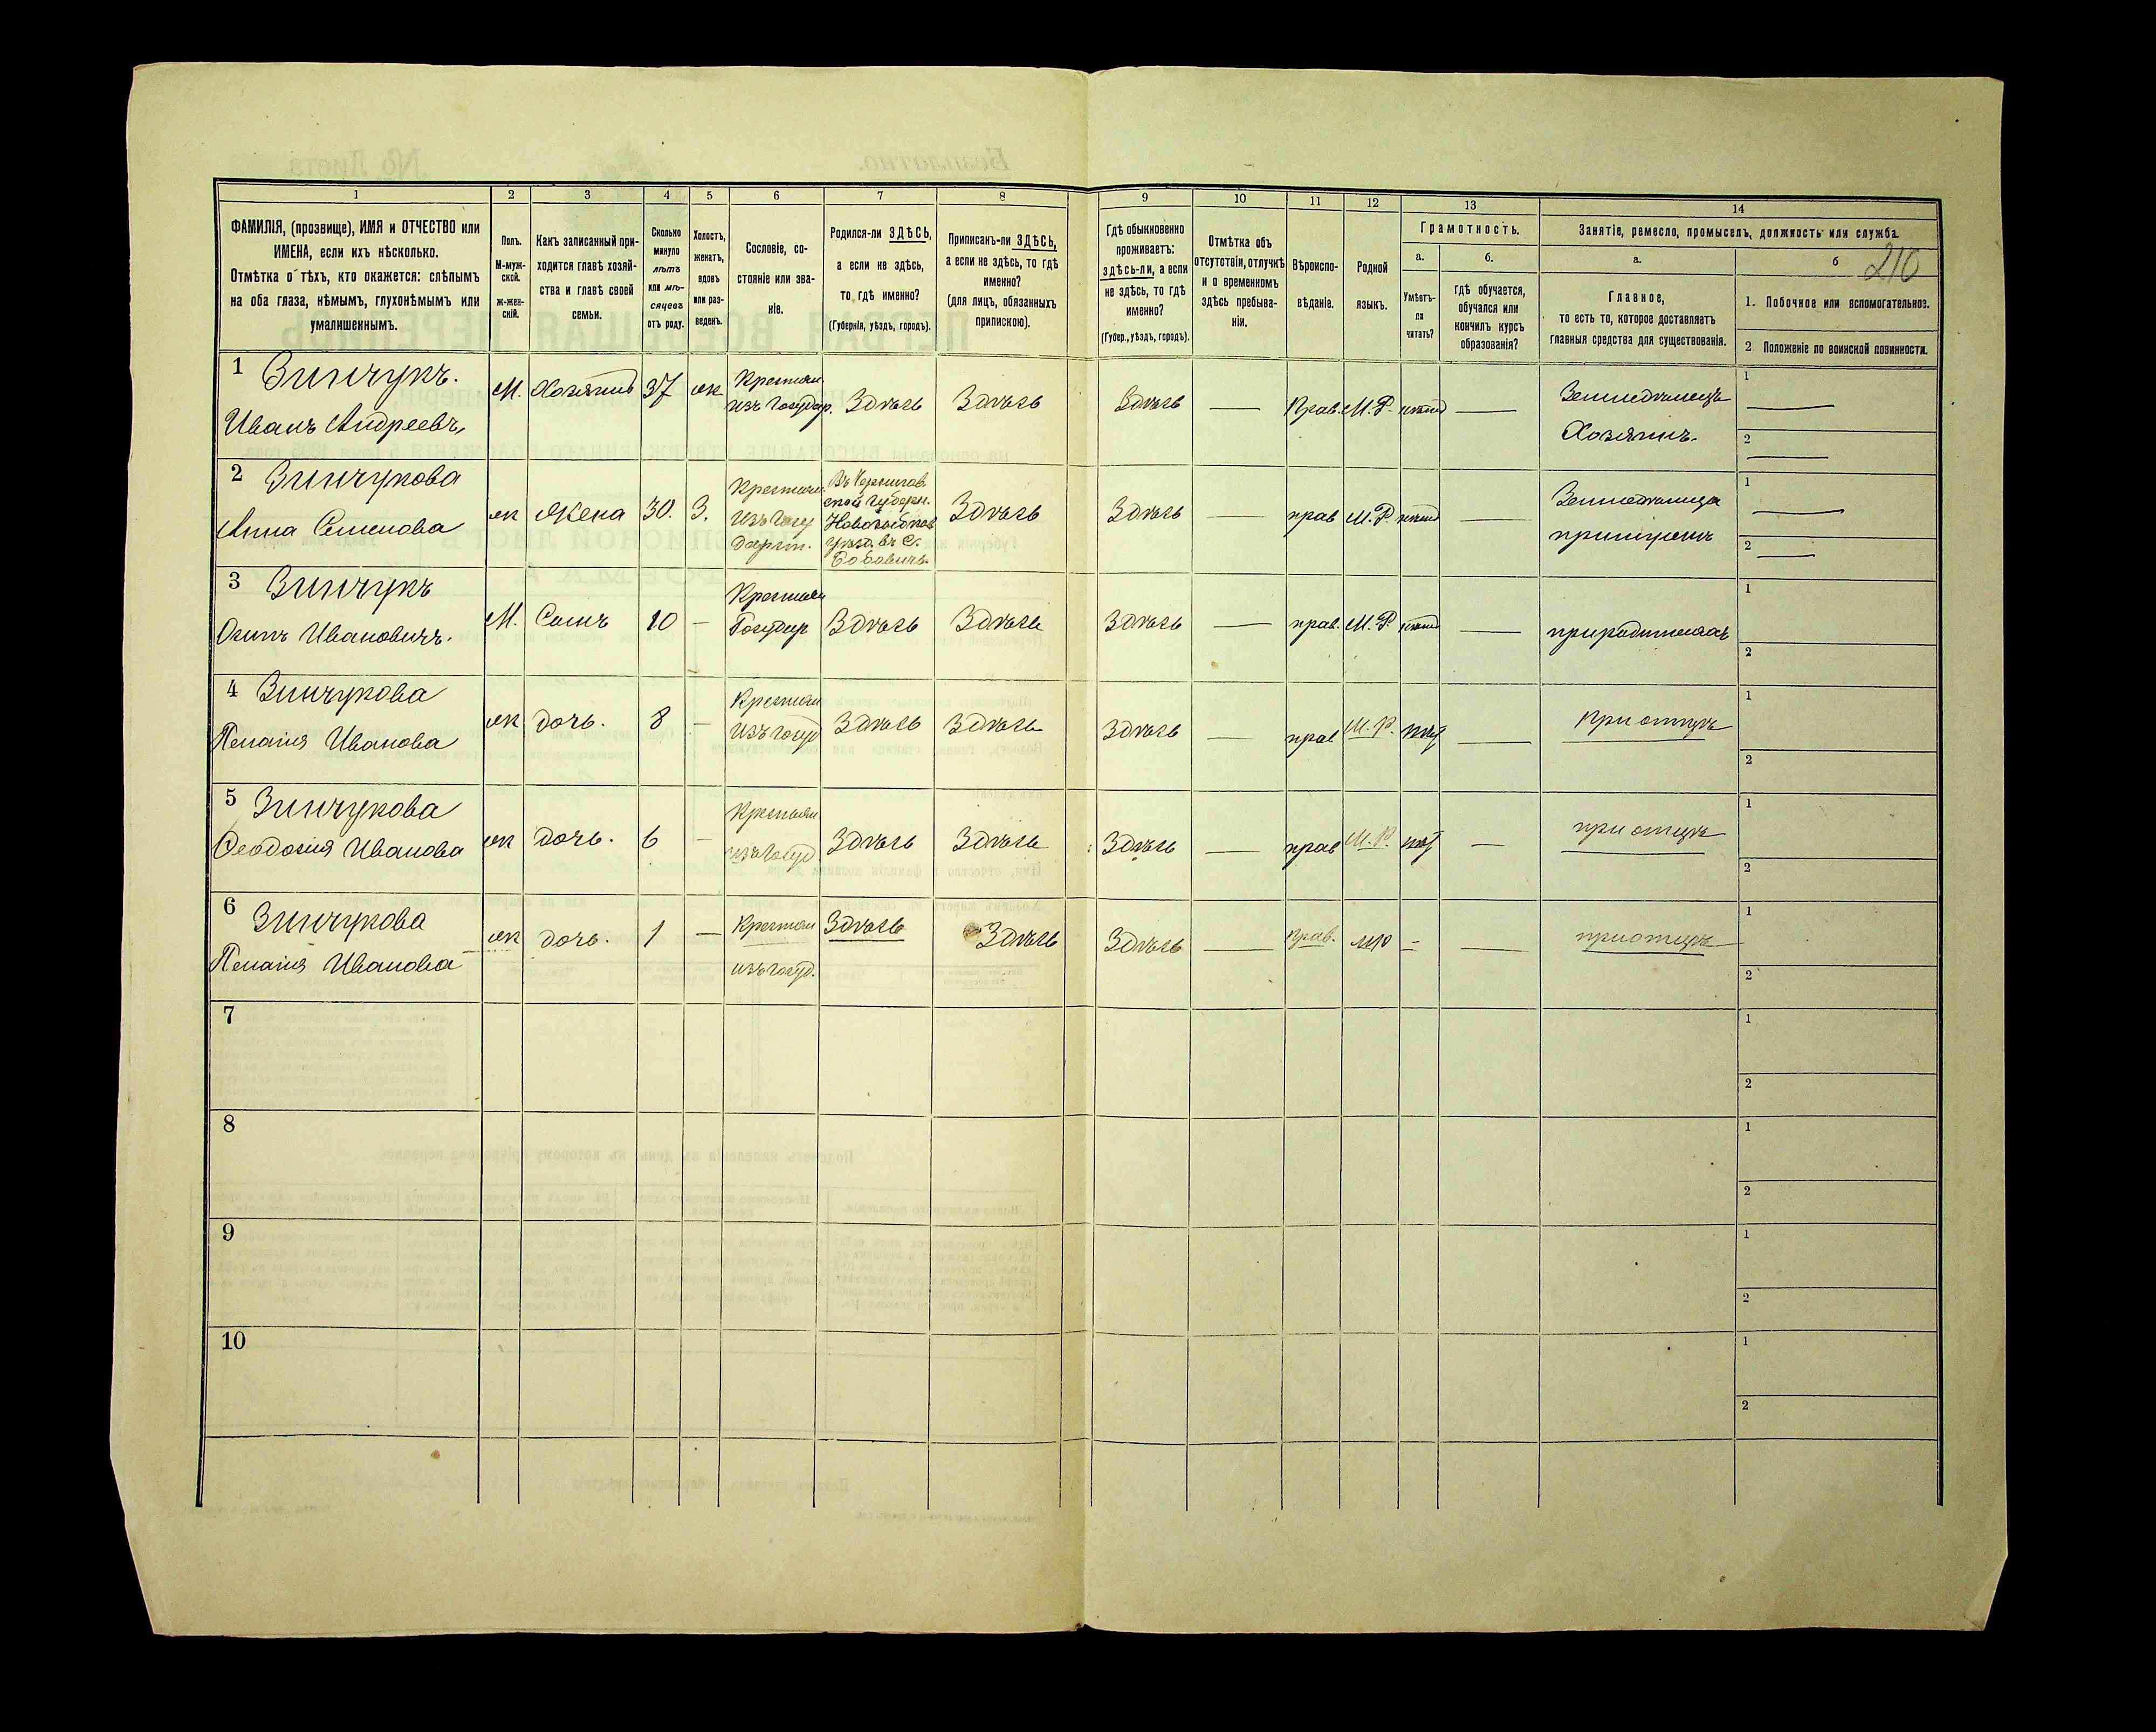 210
1 2 3 4 5 6 7 8 9 10 11 12 13 14
ФАМИЛІЯ, (прозвище), ИМЯ и ОТЧЕСТВО или
ИМЕНА, если ихъ нѣсколько.
Отмѣтка о тѣхъ, кто окажется: слѣпымъ
на оба глаза, нѣмымъ, глухонѣмымъ или
умалишеннымъ.
Полъ.
М-муж-
ской.
ж-жен-
скій.
Какъ записанный при-
ходится главѣ хозяй-
ства и главѣ своей
семьи.
Сколько
минуло
лѣтъ
или мѣ-
сяцевъ
отъ роду.
Холостъ,
женатъ,
вдовъ
или раз-
веденъ.
Сословіе, со-
стояніе или зва-
ніе.
Родился-ли ЗДѢСЬ,
а если не здѣсь,
то гдѣ именно?
(Губернія, уѣздъ, городъ).
Приписанъ-ли ЗДѢСЬ,
а если не здѣсь, то гдѣ
именно?
(для лицъ, обязанныхъ
припискою).
Гдѣ обыкновенно
проживаетъ:
здѣсь-ли, а если
не здѣсь, то гдѣ
именно?
(Губер., уѣздъ, городъ).
Отмѣтка объ
отсутствіи, отлучкѣ
и о временномъ
здѣсь пребыва-
ніи.
Вѣроиспо-
вѣданіе.
Родной
языкъ.
Грамотность.
а.
Умѣетъ-
ли
читать?
б.
Гдѣ обучается,
обучался или
кончилъ курсъ
образованія?
Занятіе, ремесло, промыселъ, должность или служба.
а.
Главное,
то есть то, которое доставляетъ
главныя средства для существованія.
б
1. Побочное или вспомогательное.
2 Положеніе по воинской повинности.
1 Зинчукъ.
Иванъ Андреевъ,
М. Хозяинъ 37 ж
Крестьян.
изъ Государ.
Здѣсь Здѣсь Здѣсь — Прав. М.Р. —
Земледѣлецъ
Хозяинъ.
1 —
2 —
2 Зинчукова
Анна Семенова
ж Жена 30. З.
Крестьян.
изъ Госу
дарст.
Въ Чернигов
ской Губерн.
Новозыбков
Уѣзд. въ С.
Бобовичъ
Здѣсь Здѣсь — прав М.Р. —
Земледѣлица
1 —
2 —
3 Зинчукъ
Осипъ Ивановичъ.
М. Сынъ 10 —
Крестьян
Государ
Здѣсь Здѣсь Здѣсь — прав. М.Р. —
1
2
4 Зинчукова
Пелагія Иванова
ж дочь. 8 —
Крестьян
изъ Госуд
Здѣсь Здѣсь Здѣсь — прав М.Р. —
при отцѣ
1
2
5 Зинчукова
Феодосія Иванова
ж дочь. 6 —
Крестьян
изъ Госуд
Здѣсь Здѣсь Здѣсь — прав М.Р. —
при отцѣ
1
2
6 Зинчукова
Пелагія Иванова
ж дочь. 1 —
Крестьян
изъ Госуд.
Здѣсь Здѣсь Здѣсь — Прав. мр - —
при отцѣ
1
2
7
1
2
8
1
2
9
1
2
10
1
2